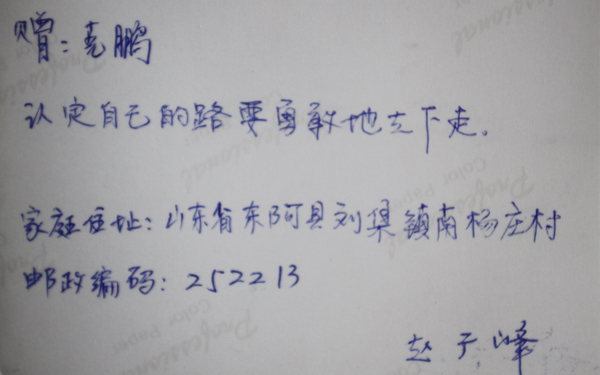 赠：尧鹏
认定自己的路要勇敢地去下走。
家庭住址：山东省东阿县刘集镇南杨庄村
邮政编码：252213
赵子峰